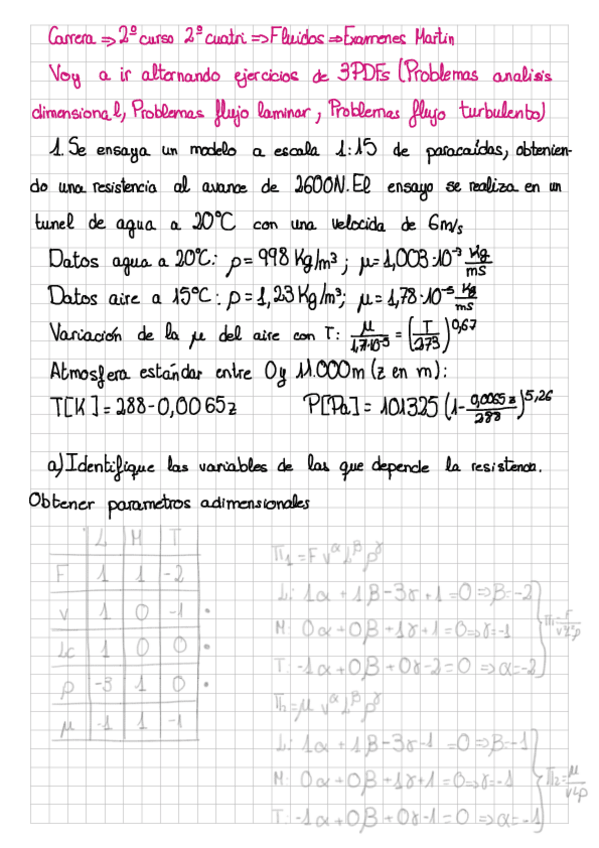 Carrera ⇒ 2º curso 2º cuatri ⇒ Fluidos ⇒ Examenes Martin
Voy a ir alternando ejercicios de 3PDFs (Problemas analisis
dimensional, Problemas flujo laminar, Problemas flujo turbulento)
1. Se ensaya un modelo a escala 1:15 de paracaídas, obtenien-
do una resistencia al avance de 2600N. El ensayo se realiza en un
tunel de agua a 20ºC con una velocida de 6m/s
Datos agua a 20ºC: ρ=998 Kg/m³; μ=1,003·10⁻³ Kg/ms
Datos aire a 15ºC: ρ=1,23 Kg/m³; μ=1,78·10⁻⁵ Kg/ms
Variación de la μ del aire con T: μ/1,7·10⁻⁵ = (T/273)^0,67
Atmosfera estándar entre 0 y 11.000m (z en m):
T[K] = 288-0,0065z P[Pa] = 101325 (1-0,0065z/288)^5,26
a) Identifique las variables de las que depende la resistencia.
Obtener parametros adimensionales
L M T
F 1 1 -2
v 1 0 -1 •
Lc 1 0 0 •
ρ -3 1 0 •
μ -1 1 -1
Π₁ = F v^α L^β ρ^γ
L: 1α + 1β - 3γ + 1 = 0 ⇒ β = -2
M: 0α + 0β + 1γ + 1 = 0 ⇒ γ = -1
T: -1α + 0β + 0γ - 2 = 0 ⇒ α = -2
Π₁ = F/v²L²ρ
Π₂ = μ v^α L^β ρ^γ
L: 1α + 1β - 3γ - 1 = 0 ⇒ β = -1
M: 0α + 0β + 1γ + 1 = 0 ⇒ γ = -1
T: -1α + 0β + 0γ - 1 = 0 ⇒ α = -1
Π₂ = μ/vLρ